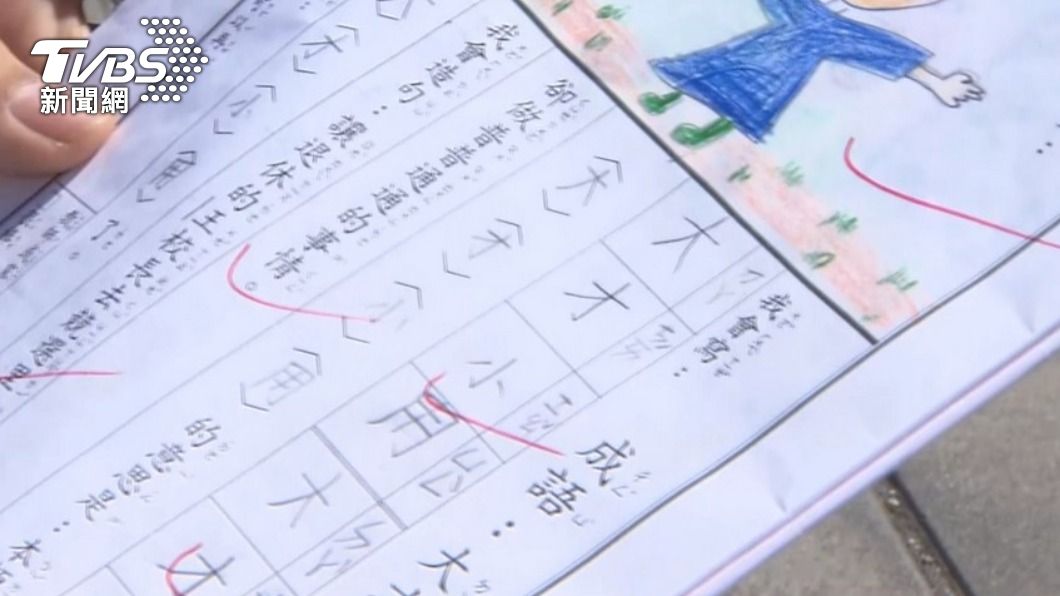 TVBS
新聞網
成語：大
我會寫：
大才小用
大才
〈大〉〈才〉〈小〉〈用〉的意思是：本
卻做普普通通的事情。
我會造句：讓退休的王校長去競選里
〈才〉〈小〉〈用〉了。